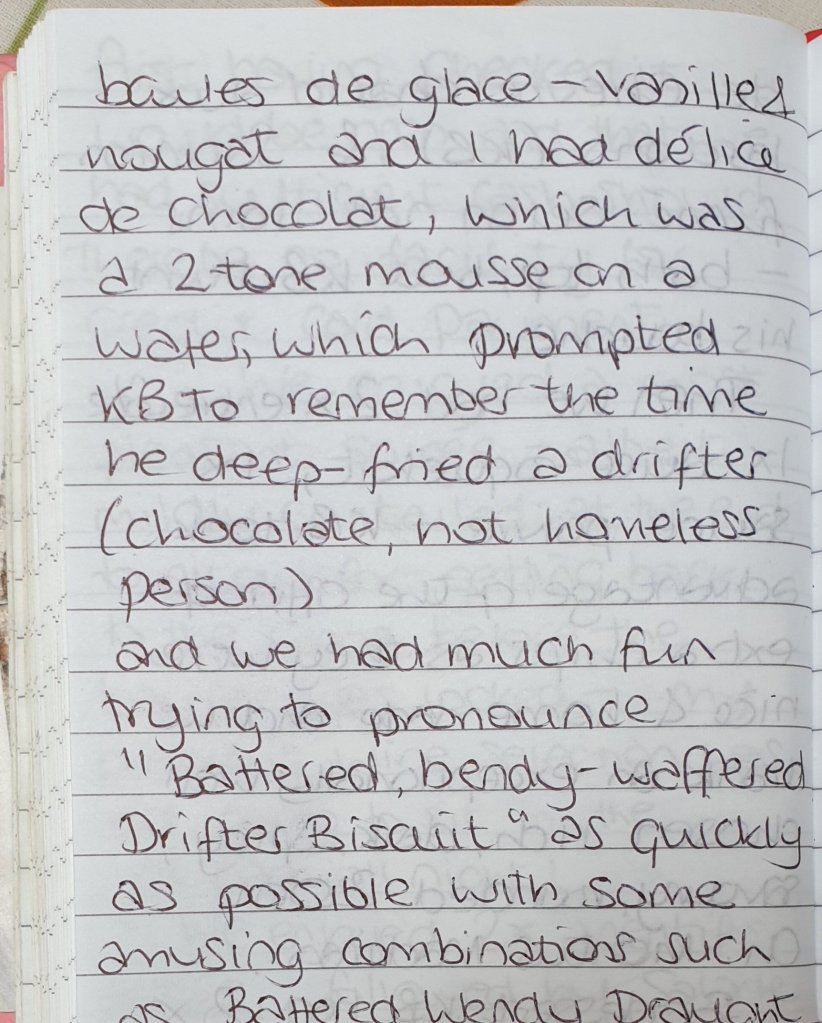 baules de glace - vanilles
nougat and I had délice
de chocolat, which was
a 2 tone mousse on a
wafer, which prompted
KB To remember the time
he deep-fried a drifter
(chocolate, not homeless
person)
and we had much fun
trying to pronounce
"Battered, bendy-waffered
Drifter Biscuit" as quickly
as possible with some
amusing combinations such
as Battered Wendy Draught